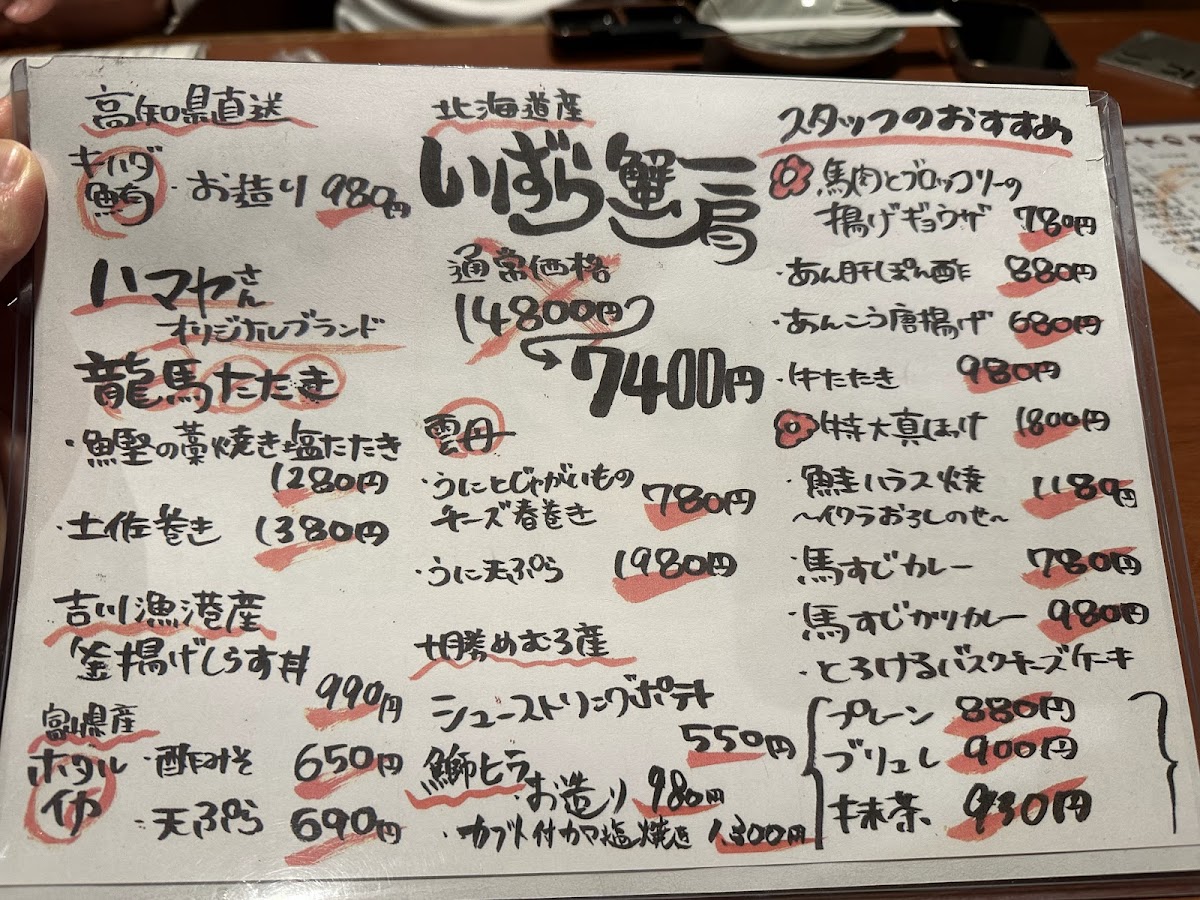 高知県直送
キハダ
鮪
・お造り 980円
ハマヤさん
オリジナルブランド
龍馬たたき
・鰹の藁焼き塩たたき
1280円
・土佐巻き 1380円
吉川漁港産
釜揚げしらす丼
990円
富山県産
ホタル
イカ
・酢みそ 650円
・天ぷら 690円
北海道産
いばら蟹一肩
通常価格
14800円
7400円
雲丹
・うにとじゃがいもの
チーズ春巻き 780円
・うに天ぷら 1980円
十勝めむろ産
シューストリングポテト
550円
鰤ヒラ
・お造り 980円
・カブト付カマ塩焼き 1,300円
スタッフのおすすめ
馬肉とブロッコリーの
揚げギョウザ 780円
・あん肝ぽん酢 880円
・あんこう唐揚げ 680円
・牛たたき 980円
特大真ほっけ 1800円
・鮭ハラス焼 1180円
〜イクラおろしのせ〜
・馬すじカレー 780円
・馬すじカツカレー 980円
・とろけるバスクチーズケーキ
プレーン 880円
ブリュレ 900円
抹茶 930円